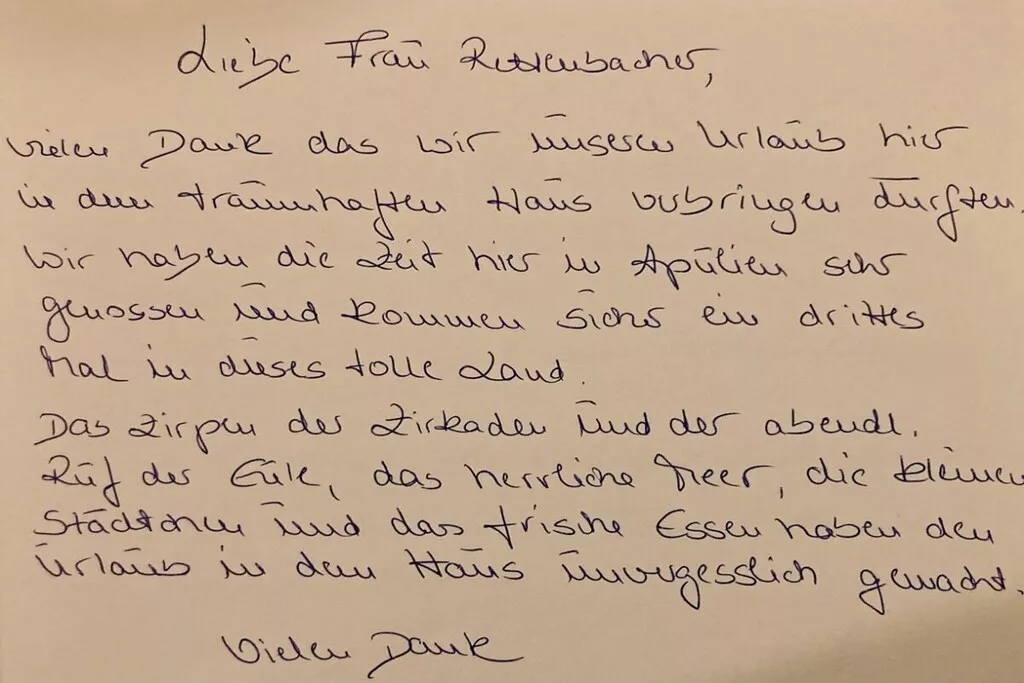 Liebe Frau Rettenbacher,
vielen Dank das wir unseren Urlaub hier
in dem traumhaften Haus verbringen durften.
Wir haben die Zeit hier in Apulien sehr
genossen und kommen sicher ein drittes
Mal in dieses tolle Land.
Das Zirpen der Zirkaden und der abendl.
Ruf der Eule, das herrliche Meer, die kleinen
Städtchen und das frische Essen haben den
Urlaub in dem Haus unvergesslich gemacht.
Vielen Dank